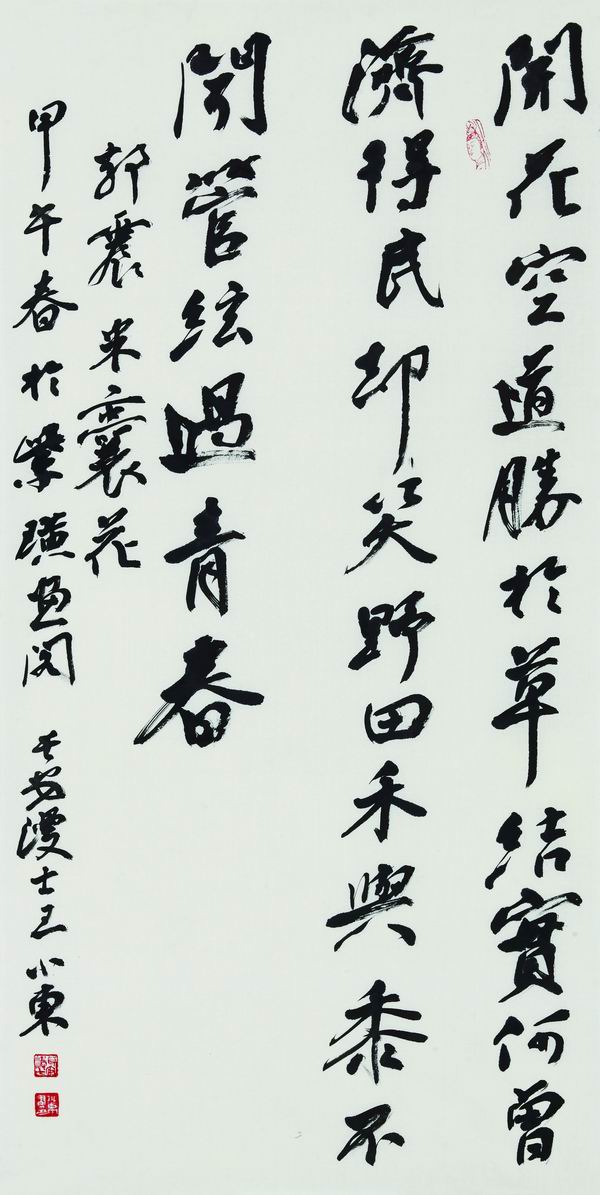 開花空道勝於草結實何曾
濟得民却笑野田禾與黍不
聞管絃過青春
郭震米囊花
甲午春於紫璜画閣
長安漫士王小東